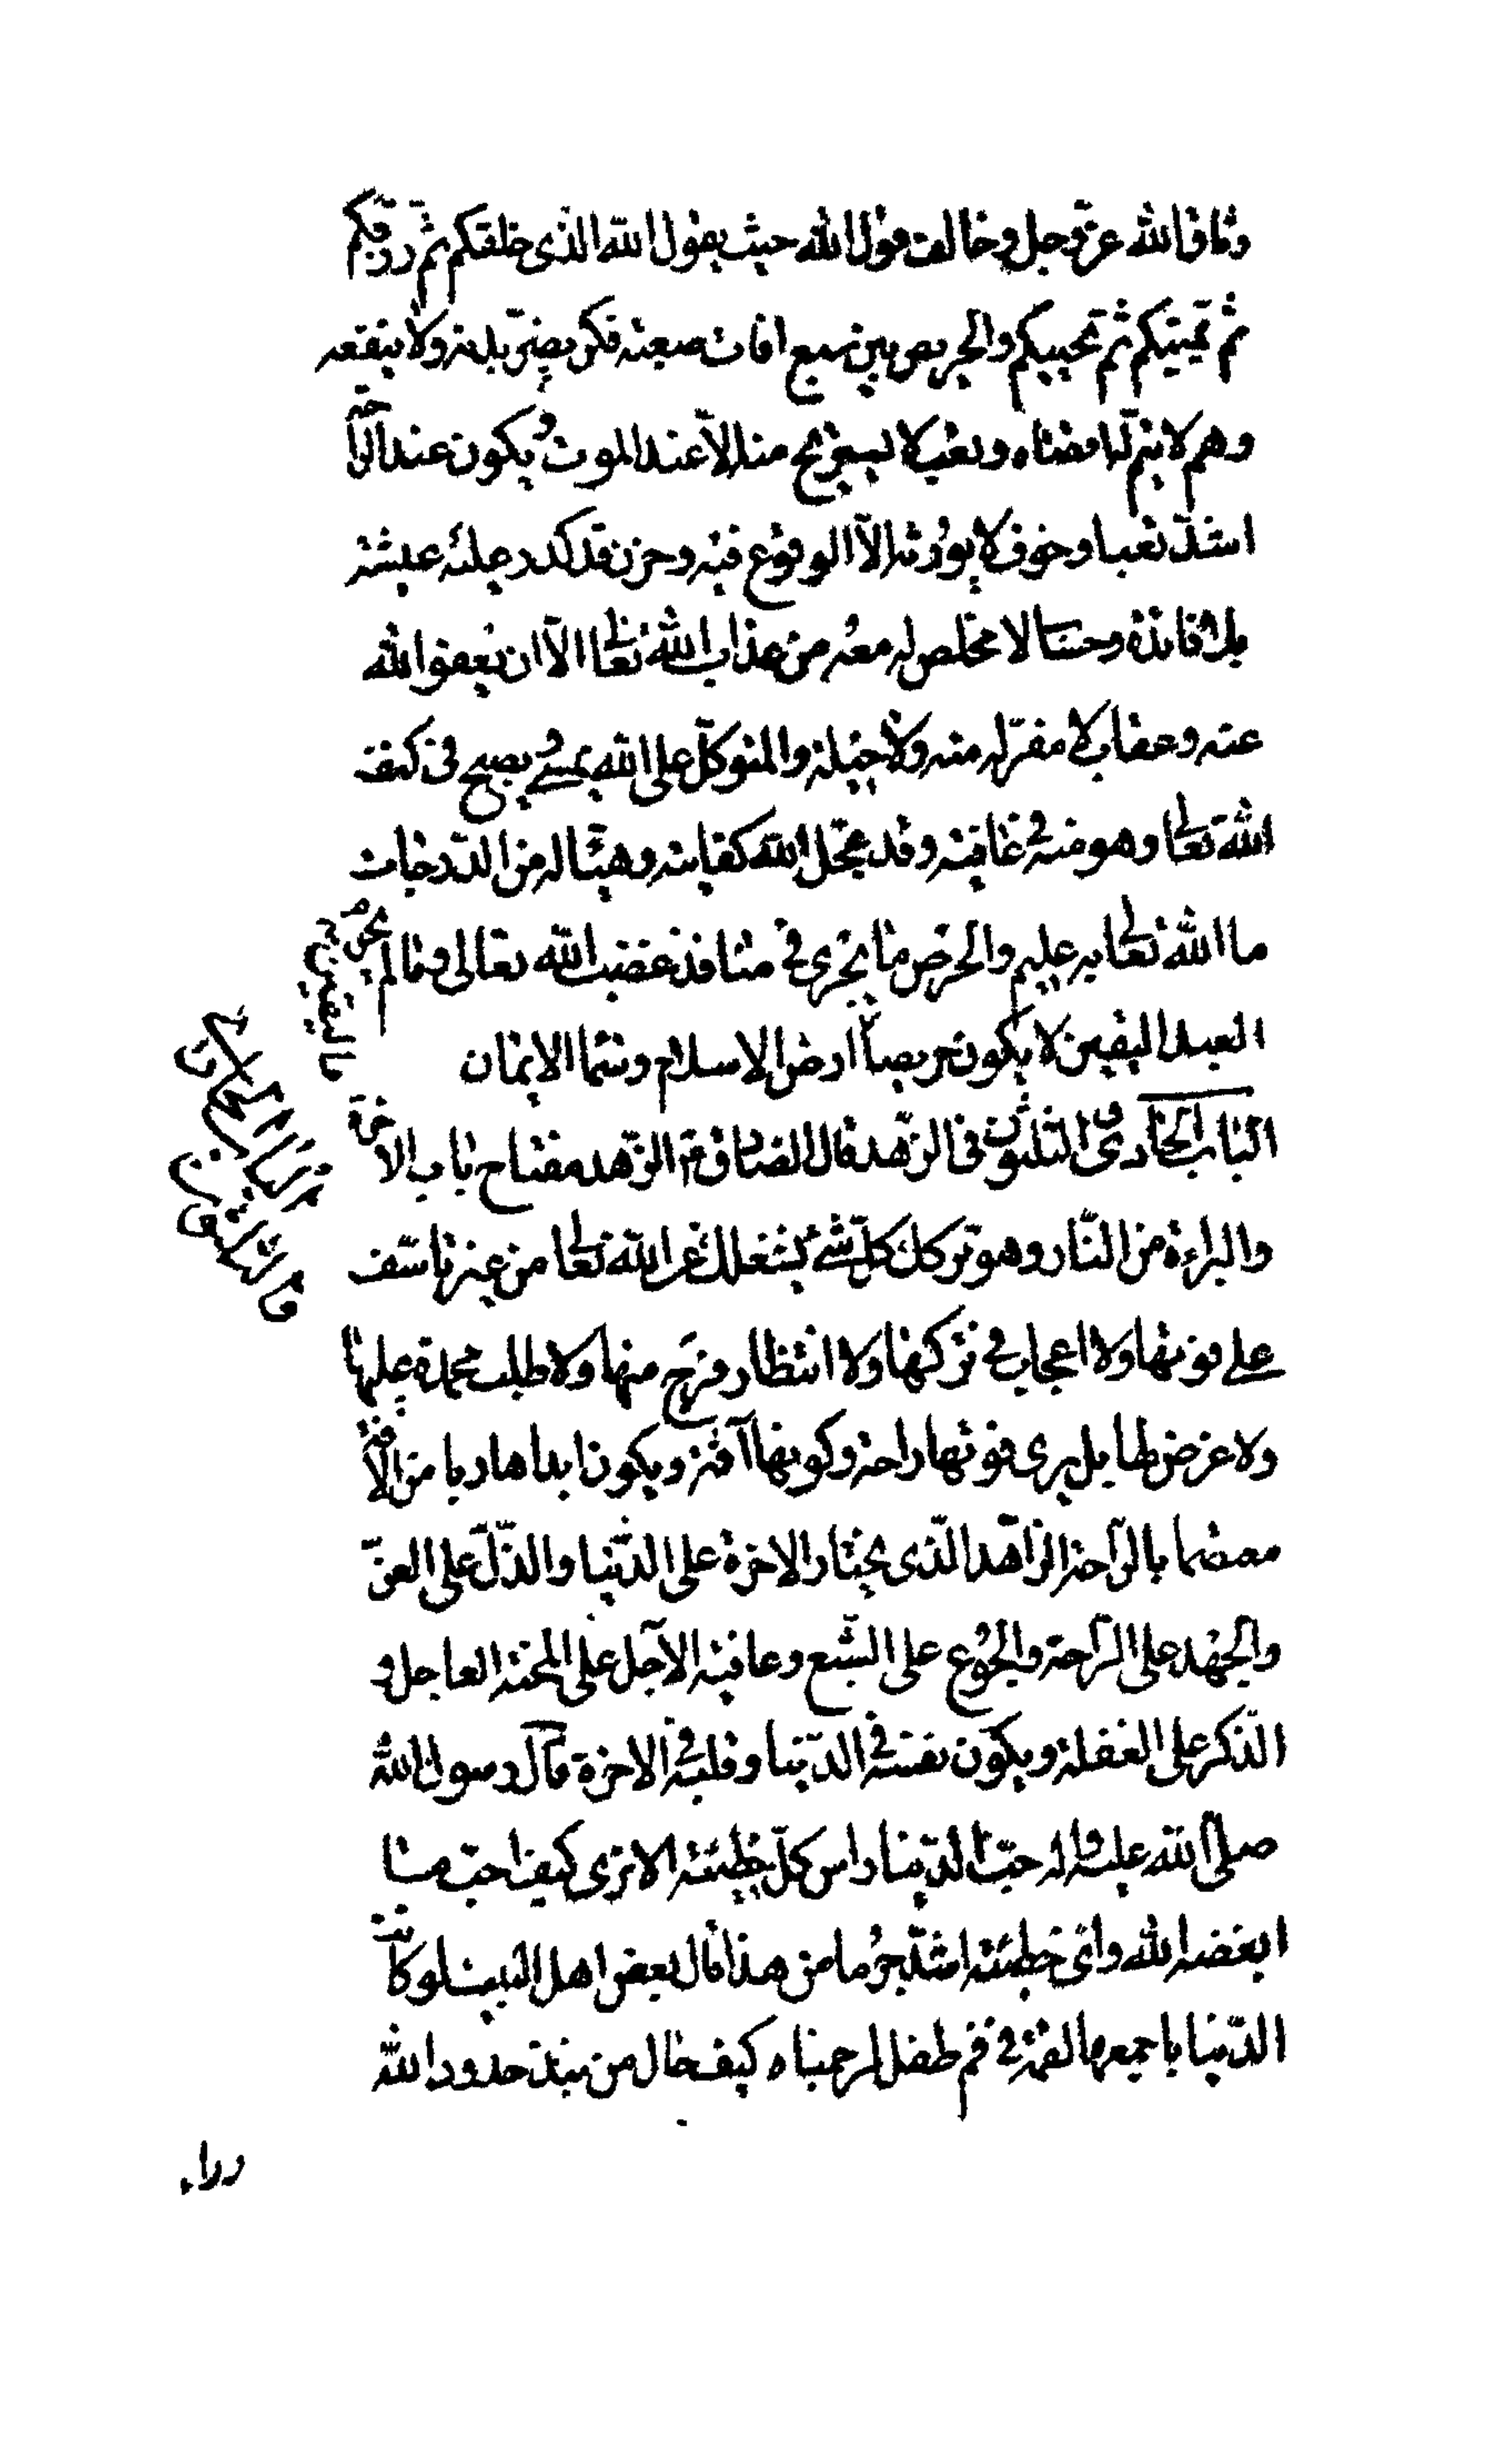 وثاق الله عزّ وجل وخالف قول الله حيث يقول الله الذى خلقكم ثم رزقكم
ثم يميتكم ثم يحييكم والحريص بين سبع افات صعبة فكر يضرّ بدنه ولا ينفعه
وهم لا يتم له اقصاه وتعب لا يستريح منه الّا عند الموت ويكون عند الراحة
اشدّ تعبا وخوف لا يورثه الّا الوقوع فيه وحزن قد كدر عليه عيشه
بلا فائدة وحساب لا مخلص له معه من عذاب الله تعالى الّا ان يعفو الله
عنه وعقاب لا مفرّ له منه ولا حيلة والمتوكّل على الله يمسى و يصبح فى كنف
الله تعالى وهو منه فى عافية وقد عجّل الله كفايته وهيّأ له من الدّرجات
ما الله تعالى به عليم والحرص ما يجرى فى منافذ غضب الله تعالى وما لم يحرم
العبد اليقين لا يكون حريصاً ارض الاسلام وسماء الايمان
الباب الحادى و الثلثون فى الزّهد قال الصادق ع الزّهد مفتاح باب الاخرة
والبراءة من النّار وهو تركك كلّ شئ يشغلك عن الله تعالى من غير تاسّف
على فوتها ولا اعجاب فى تركها ولا انتظار فرج منها ولا طلب محمدة عليها
ولا عوض لها بل يرى فوتها راحة وكونها آفة ويكون ابدا هاربا من الآفة
معتصما بالرّاحة الزّاهد الّذى يختار الاخرة على الدّنيا والذّلّ على العزّ
والجهد على الرّاحة والجوع على الشّبع وعافية الآجل على المحنة العاجل و
الذّكر على الغفلة ويكون نفسه فى الدّنيا وقلبه فى الاخرة قال رسول الله
صلى الله عليه واله حبّ الدّنيا راس كلّ خطيئة الا ترى كيف احبّ ما
ابغضه الله واىّ خطيئة اشدّ جرما من هذا قال بعض اهل البيت لو كانت
الدّنيا باجمعها لقمة فى فم طفل لرحمناه كيف حال من نبذ حدود الله
وراء